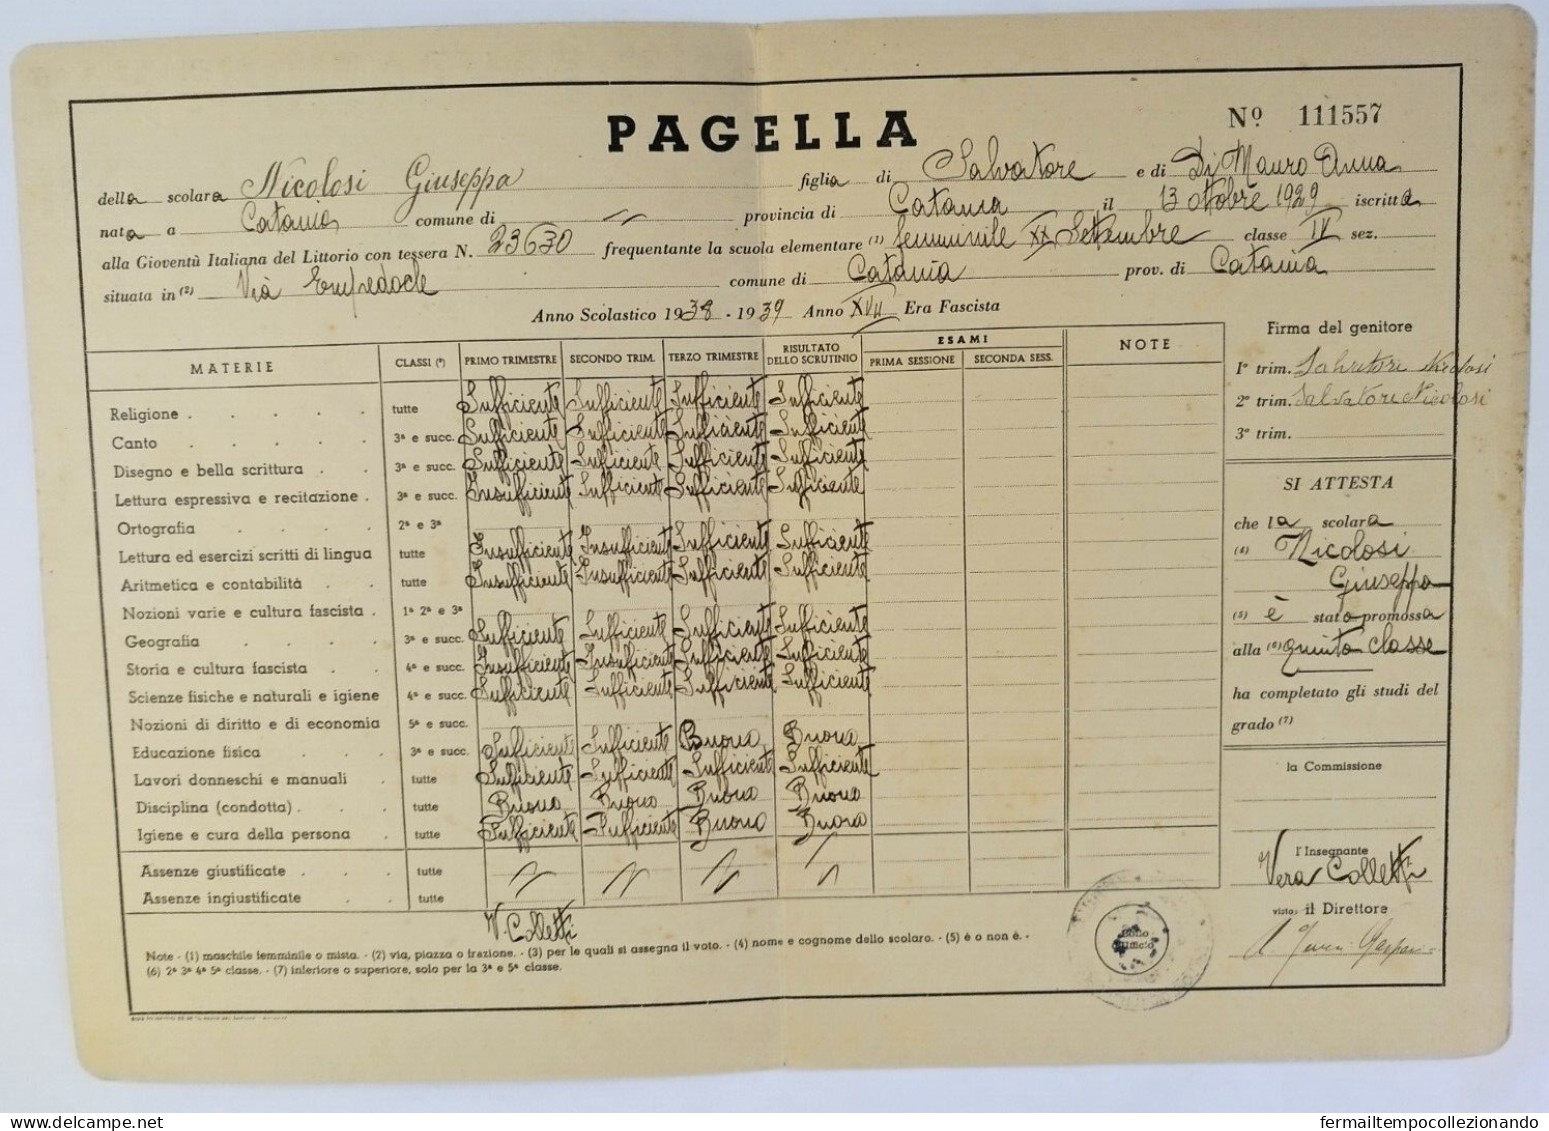 PAGELLA
Nº 111557
della scolara Nicolosi Giuseppa figlia di Salvatore e di Di Mauro Anna
nata a Catania comune di " provincia di Catania il 13 ottobre 1929 iscritta
alla Gioventù Italiana del Littorio con tessera N. 23630 frequentante la scuola elementare (1) femminile XX Settembre classe IV sez.
situata in (2) Via Empedocle comune di Catania prov. di Catania
Anno Scolastico 1938 - 1939 Anno XVII Era Fascista
MATERIE CLASSI (*) PRIMO TRIMESTRE SECONDO TRIM. TERZO TRIMESTRE RISULTATO DELLO SCRUTINIO ESAMI PRIMA SESSIONE SECONDA SESS. NOTE
Religione tutte Sufficiente Sufficiente Sufficiente Sufficiente
Canto 3ª e succ. Sufficiente Sufficiente Sufficiente Sufficiente
Disegno e bella scrittura 3ª e succ. Sufficiente Sufficiente Sufficiente Sufficiente
Lettura espressiva e recitazione 3ª e succ. Insufficiente Sufficiente Sufficiente Sufficiente
Ortografia 2ª e 3ª
Lettura ed esercizi scritti di lingua tutte Insufficiente Insufficiente Sufficiente Sufficiente
Aritmetica e contabilità tutte Insufficiente Insufficiente Sufficiente Sufficiente
Nozioni varie e cultura fascista 1ª 2ª e 3ª
Geografia 3ª e succ. Sufficiente Sufficiente Sufficiente Sufficiente
Storia e cultura fascista 4ª e succ. Insufficiente Insufficiente Sufficiente Sufficiente
Scienze fisiche e naturali e igiene 4ª e succ. Sufficiente Sufficiente Sufficiente Sufficiente
Nozioni di diritto e di economia 5ª e succ.
Educazione fisica 3ª e succ. Sufficiente Sufficiente Buona Buona
Lavori donneschi e manuali tutte Sufficiente Sufficiente Sufficiente Sufficiente
Disciplina (condotta) tutte Buona Buona Buona Buona
Igiene e cura della persona tutte Sufficiente Sufficiente Buona Buona
Assenze giustificate tutte " " " "
Assenze ingiustificate tutte
V. Colletti
Note - (1) maschile femminile o mista. - (2) via, piazza o frazione. - (3) per le quali si assegna il voto. - (4) nome e cognome dello scolaro. - (5) è o non è. -
(6) 2ª 3ª 4ª 5ª classe. - (7) inferiore o superiore, solo per la 3ª e 5ª classe.
Firma del genitore
1º trim. Salvatore Nicolosi
2º trim. Salvatore Nicolosi
3º trim.
SI ATTESTA
che la scolara
(4) Nicolosi
Giuseppa
(5) è stata promossa
alla (6) quinta classe
ha completato gli studi del
grado (7)
la Commissione
l'Insegnante
Vera Colletti
visto: il Direttore
Bollo
d'Ufficio
fermailtempocollezionando